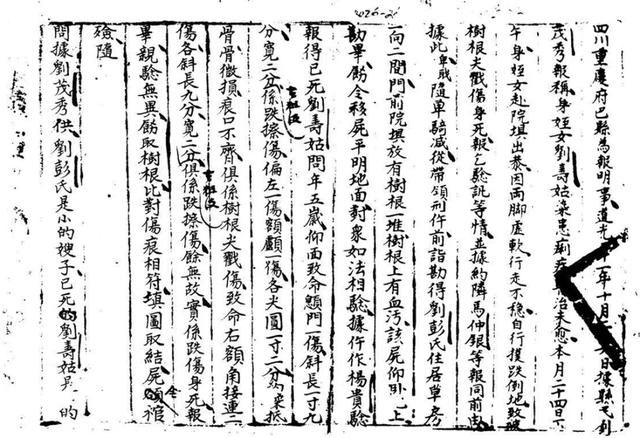 四川重慶府巴縣為報明事道光十一年十月二十六日據縣民劉
茂秀報稱身姪女劉壽姑染患痢疾醫治未愈本月二十四日下
午身姪女赴院埧出恭因兩脚虛軟行走不穩自行撲跌倒地致被
樹根尖戳傷身死報乞驗訊等情並據約隣馬仲銀等報同前由
據此卑職隨單騎減從帶領刑仵前詣勘得劉彭氏住居草房
一向二間門前院埧放有樹根一堆樹根上有血污該屍仰卧地上
勘畢飭令移屍平明地面對衆如法相驗據仵作楊貴驗
報得已死劉壽姑問年五歲仰面致命顖門一傷斜長一寸九
分寬二分係跌擦傷偏左一傷額顱一傷各尖圓一寸二分均深抵
骨骨微損痕口不齊俱係樹根尖戳傷致命右額角接連二
傷各斜長九分寬二分俱係跌擦傷餘無故實係跌傷身死報
畢親驗無異飭取樹根比對傷痕相符填圖取結屍令棺
殮隨
問據劉茂秀供劉彭氏是小的嫂子已死的劉壽姑是 的